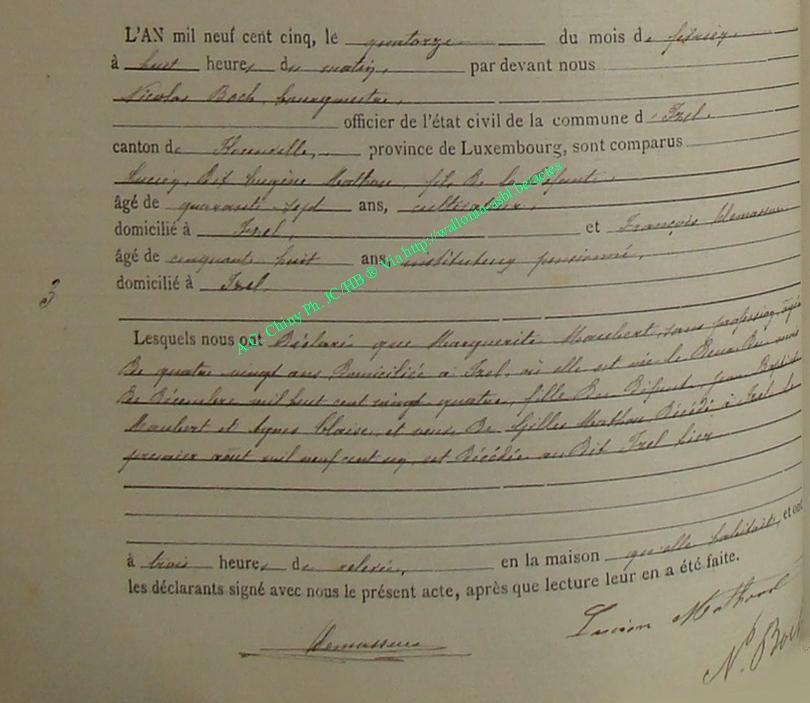 L'AN mil neuf cent cinq, le quatorze du mois de février
à huit heures du matin, par devant nous
Nicolas Boch, bourgmestre,
officier de l'état civil de la commune d'Izel.
canton de Florenville, province de Luxembourg, sont comparus
Lucien, dit Eugène Mathon, fils de la défunte,
âgé de quarante sept ans, cultivateur,
domicilié à Izel, et François Demasseur
âgé de cinquante huit ans, instituteur pensionné,
domicilié à Izel.
3
A.C. Chiny Ph. JC/HB ® Via http://wallonia-asbl.be/actes
Lesquels nous ont déclaré que Marguerite Maubert, sans profession, âgée
de quatre vingt ans domiciliée à Izel, où elle est née le deux du mois
de Décembre mil huit cent vingt quatre, fille du défunt Jean
Maubert et Agnes Claise, et veuve de Gilles Mathon décédé à Izel le
premier août mil neuf cent un, est décédée au dit Izel hier
à trois heures de relevée, en la maison qu'elle habitait, et ont
les déclarants signé avec nous le présent acte, après que lecture leur en a été faite.
Lucien Mathon
Demasseur
N. Boch